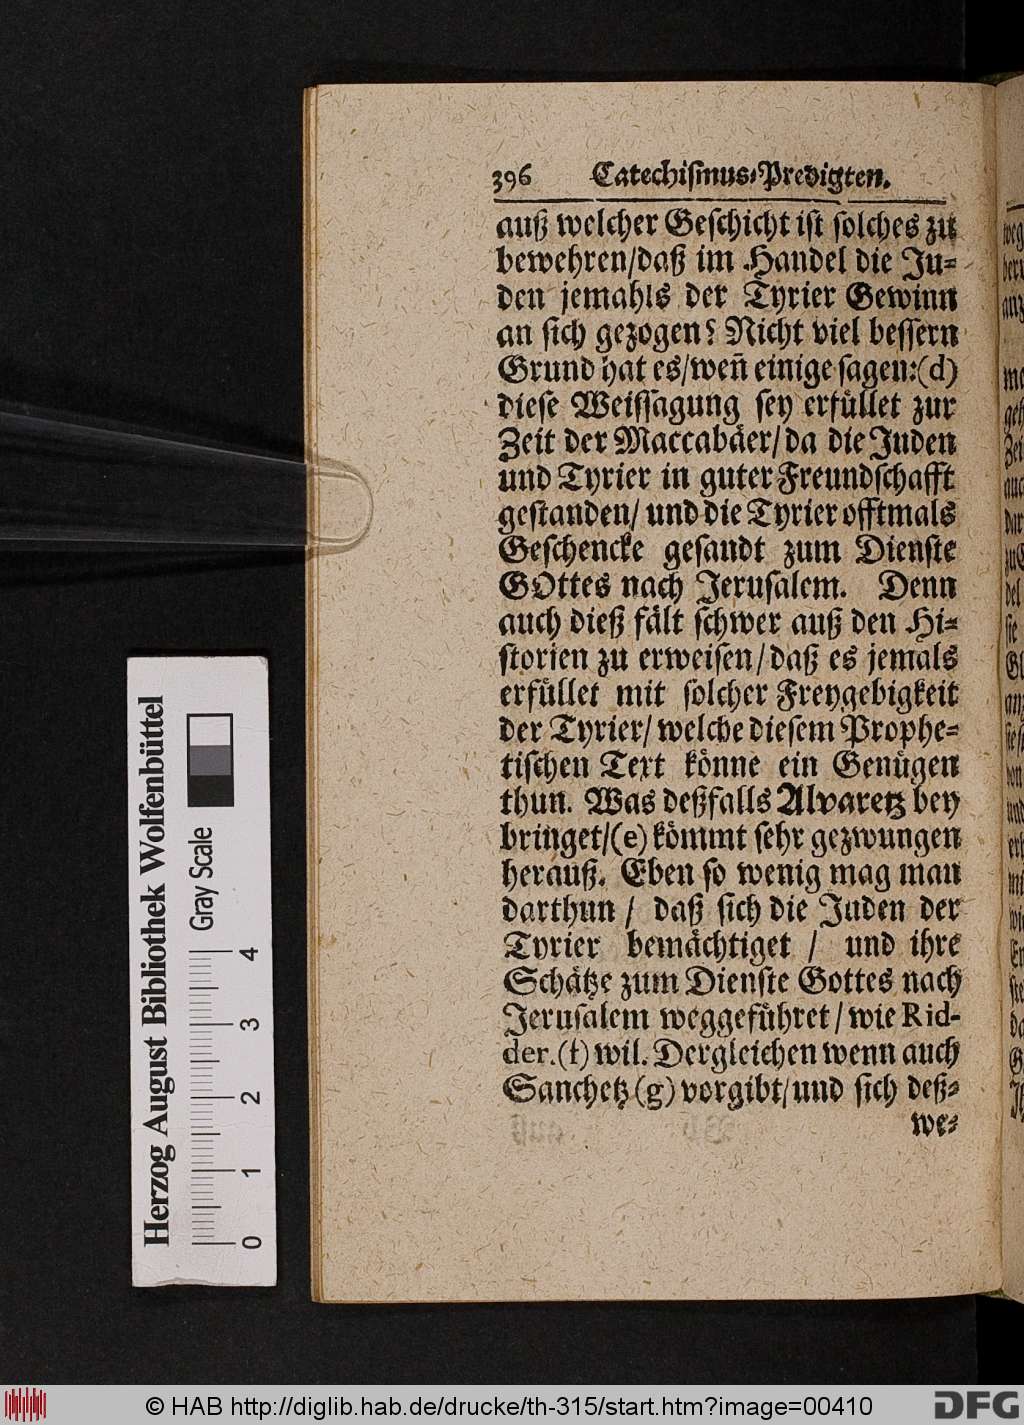 396 Catechismus-Predigten.
auß welcher Geschicht ist solches zu
bewehren/daß im Handel die Ju-
den jemahls der Tyrier Gewinn
an sich gezogen? Nicht viel bessern
Grund hat es/weñ einige sagen:(d)
diese Weissagung sey erfüllet zur
Zeit der Maccabäer/da die Juden
und Tyrier in guter Freundschafft
gestanden/ und die Tyrier offtmals
Geschencke gesandt zum Dienste
GOttes nach Jerusalem. Denn
auch dieß fält schwer auß den Hi-
storien zu erweisen/daß es jemals
erfüllet mit solcher Freygebigkeit
der Tyrier/ welche diesem Prophe-
tischen Text könne ein Genügen
thun. Was deßfalls Alvaretz bey
bringet/(e) kömmt sehr gezwungen
herauß. Eben so wenig mag man
darthun / daß sich die Juden der
Tyrier bemächtiget / und ihre
Schätze zum Dienste Gottes nach
Jerusalem weggeführet/wie Rid-
der.(f) wil. Dergleichen wenn auch
Sanchetz(g) vorgibt/und sich deß-
we-
Herzog August Bibliothek Wolfenbüttel
Gray Scale
0 1 2 3 4
© HAB http://diglib.hab.de/drucke/th-315/start.htm?image=00410
DFG